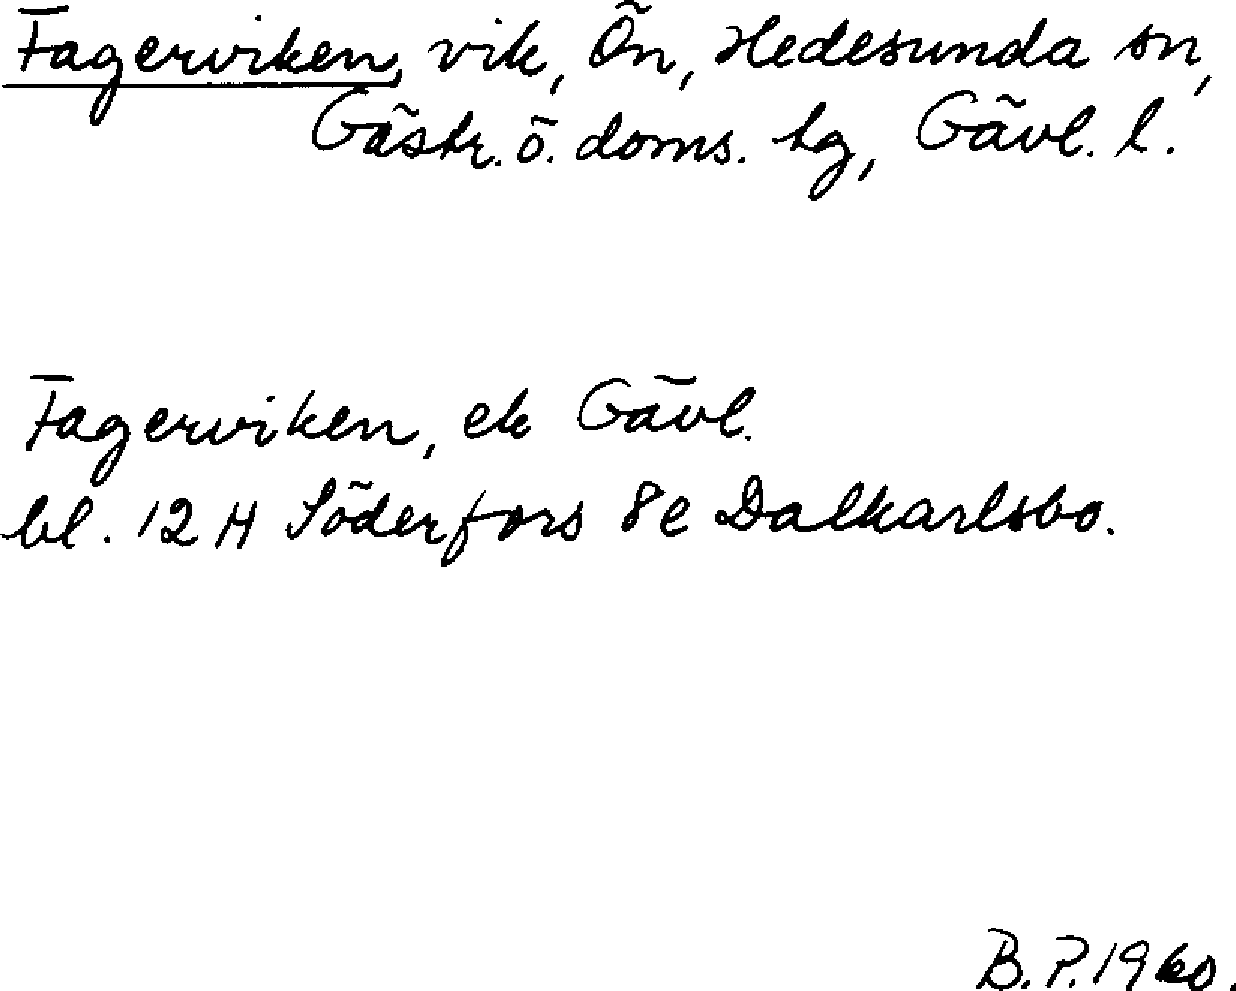 Fagerviken, vik, Ön, Hedesunda sn,
Gästr. ö. doms. tg, Gävl. l.
Fagerviken, ek Gävl.
bl. 12 H Söderfors 8e Dalkarlsbo.
B.P. 1960.